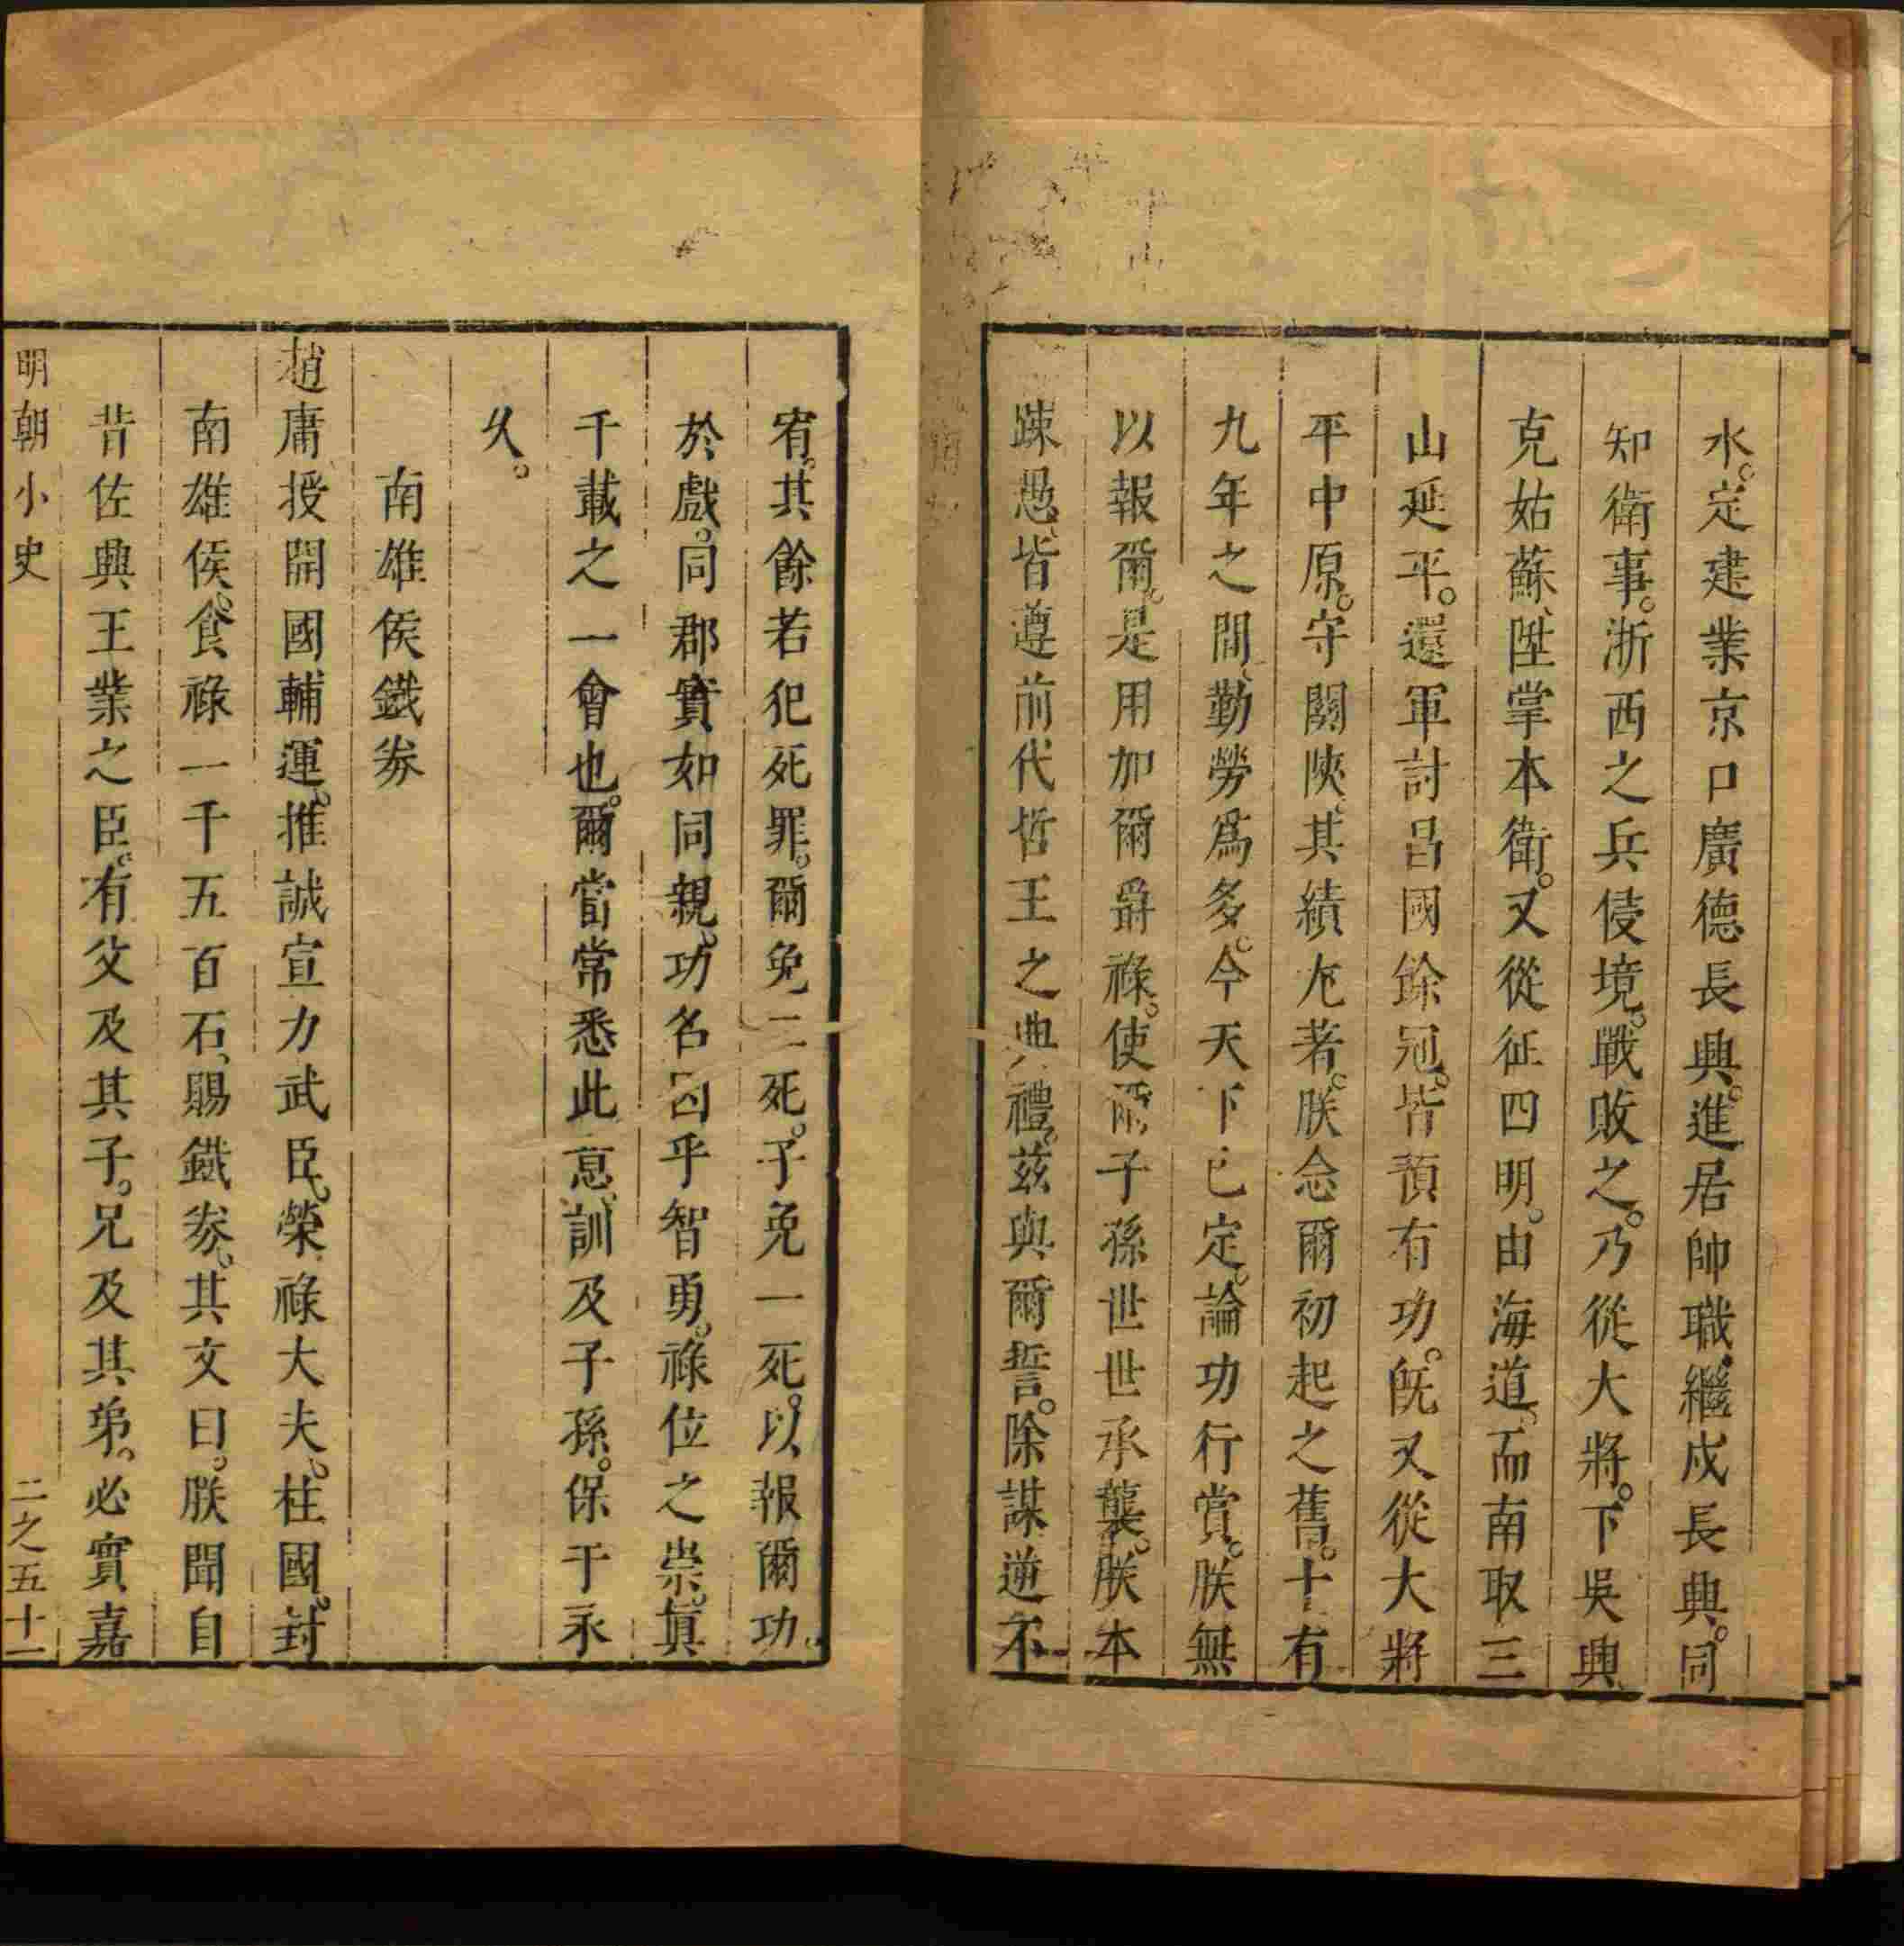 水。定建業京口廣德長興。進居帥職。繼戍長興。同
知衛事。浙西之兵侵境。戰敗之。乃從大將。下吳興
克姑蘇、陞掌本衛。又從征四明。由海道。而南取三
山延平。還軍討昌國餘冦。皆預有功。旣又從大將
平中原。守關陜。其績尤著。朕念爾初起之舊。十有
九年之間、勤勞爲多。今天下已定。論功行賞。朕無
以報爾。是用加爾爵祿。使爾子孫世世承襲。朕本
踈愚、皆遵前代哲王之典禮。茲與爾誓。除謀逆不
宥。其餘若犯死罪。爾免二死。子免一死。以報爾功。
於戲。同郡實如同親。功名因乎智勇。祿位之崇。眞
千載之一會也。爾當常悉此意、訓及子孫。保于永
久。
南雄侯鐵券
趙庸授開國輔運。推誠宣力武臣。榮祿大夫。柱國。封
南雄侯。食祿一千五百石、賜鐵券。其文曰。朕聞自
昔佐興王業之臣。有父及其子。兄及其弟。必實嘉
明朝小史
二之五十一